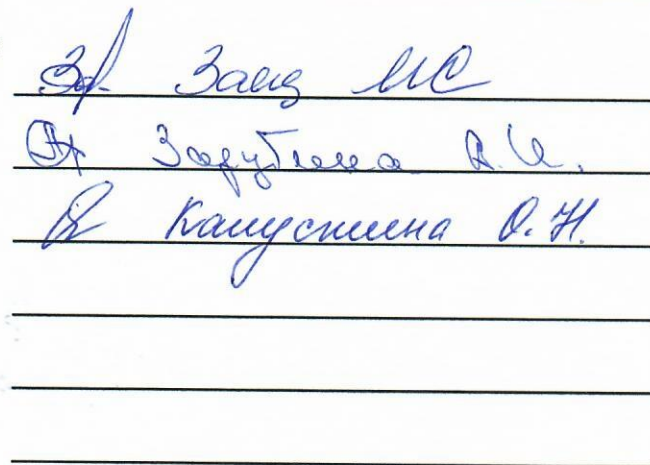 Заяц МС
Зарубина А.И.
Капустина О.Н.